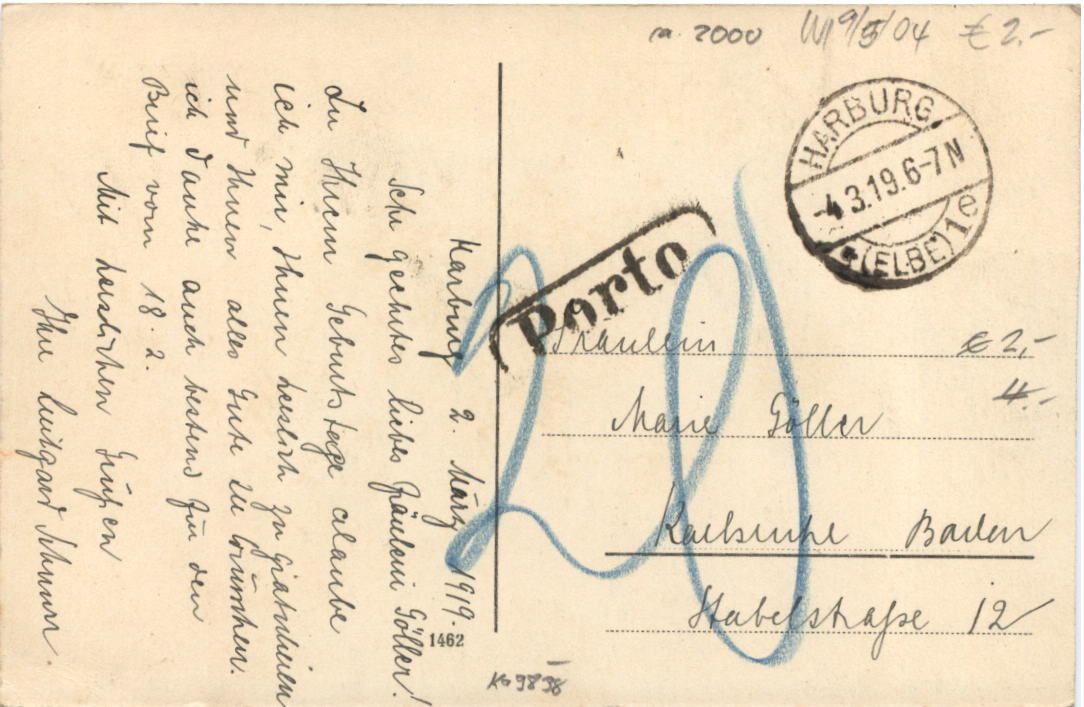 ca. 2000 W 9/5/04 € 2.-
HARBURG
-4.3.19.6-7N
* (ELBE) 1e
Porto
20
Harburg 2. März 1919.
Sehr geehrtes liebes Fräulein Göller!
Zu Ihrem Geburtstage erlaube
ich mir, Ihnen herzlich zu gratulieren
und Ihnen alles Gute zu wünschen.
ich danke auch bestens für den
Brief vom 18. 2.
Mit herzlichen Grüßen
Ihr Luitgard
Fräulein
€ 2,-
4.-
Marie Göller
Karlsruhe Baden
Stabelstraße 12
1462